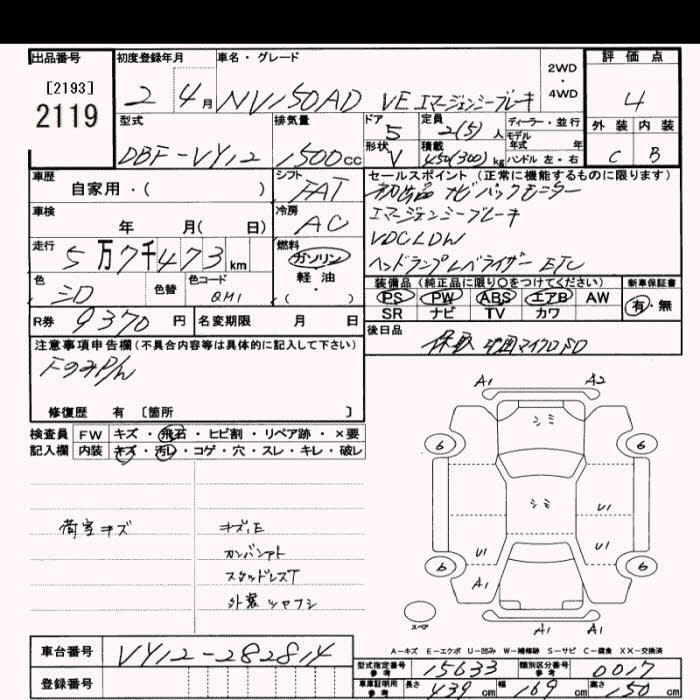 出品番号 初度登録年月 車名・グレード 評価点
[2193]
2119
2 4月 NV150AD VE エマージェンシーブレーキ 2WD・4WD 4
型式 排気量 ドア 5 定員 2(5)人 ディーラー・並行 外装 内装
モデル年式 年式
DBF-VY12 1500cc 形状 V 積載 450(300)kg ハンドル 左・右 C B
車歴 自家用・( ) シフト FAT セールスポイント(正常に機能するものに限ります)
ナビ バックモニター
車検 年 月( 日) 冷房 AC エマージェンシーブレーキ
VDC LDW
走行 5万7千473km 燃料 ガソリン・軽油・( ) ヘッドランプレベライザー ETC
色 シロ 色替 色コード QM1
装備品(純正品に限り○をつけてください) 新車保証書
PS PW ABS エアB AW 有・無
SR ナビ TV カワ
R券 9370円 名変期限 月 日
後日品 保取 マイクロSD
注意事項申告欄(不具合内容等は具体的に記入して下さい)
修復歴 有 [箇所 ]
検査員記入欄 FW キズ・飛石・ヒビ割・リペア跡・×要
内装 キズ・汚れ・コゲ・穴・スレ・キレ・破レ
A1 A2
ミミ
6 6
ミミ
U1
U1 U1
6 6
A1
スペア A1 A1
荷室キズ キズ,E
カンバンアト
スタッドレスT
外装ツヤフシ
A-キズ E-エクボ U-凹み W-補修跡 S-サビ C-腐食 XX-交換済
車台番号 VY12-282814
型式指定番号 参考 15633 類別区分番号 参考 0017
登録番号
車庫証明用 参考 長さ 439cm 幅 169cm 高さ 50cm